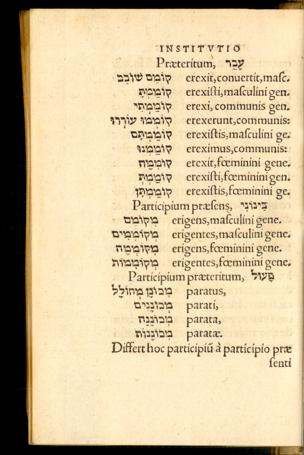 INSTITVTIO
Præteritum, עָבַר
קוֹמֵם שׁוֹבֵב erexit, conuertit, masc.
קוֹמַמְתָּ erexisti, masculini gen.
קוֹמַמְתִּי erexi, communis gen.
קוֹמְמוּ עוֹרְרוּ erexerunt, communis:
קוֹמַמְתֶּם erexistis, masculini ge.
קוֹמַמְנוּ ereximus, communis:
קוֹמְמָה erexit, fœminini gene.
קוֹמַמְתְּ erexisti, fœminini gen.
קוֹמַמְתֶּן erexistis, fœminini ge.
Participium præsens, בֵּינוֹנִי
מְקוֹמֵם erigens, masculini gene.
מְקוֹמְמִים erigentes, masculini gene.
מְקוֹמְמָה erigens, fœminini gene.
מְקוֹמְמוֹת erigentes, fœminini gene.
Participium præteritum, פָּעוּל
מְכוֹנָן מְחוֹלָל paratus,
מְכוֹנָנִים parati,
מְכוֹנָנָה parata,
מְכוֹנָנוֹת paratæ.
Differt hoc participiũ à participio præ
senti